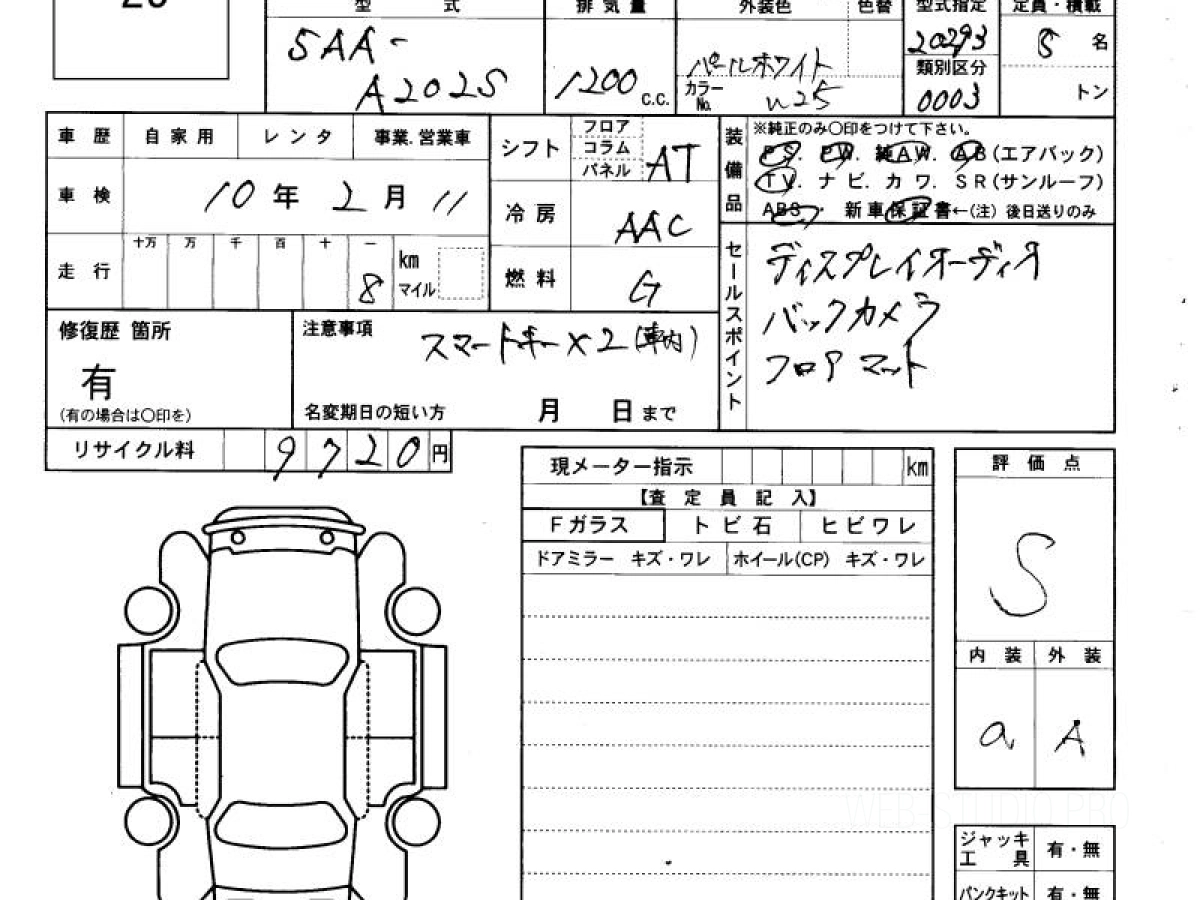 型 式 排気量 外装色 色替 型式指定 定員・積載
5AA-
A202S
1200 C.C.
パールホワイト
カラーNo. W25
20293
類別区分
0003
5 名
トン
車歴 自家用 レンタ 事業.営業車
車検 10年 2月 11
走行 十万 万 千 百 十 一
8 km マイル
シフト フロア コラム パネル AT
冷房 AAC
燃料 G
装備品
※純正のみ〇印をつけて下さい。
PS. PW. 純AW. AB(エアバック)
TV. ナビ. カワ. SR(サンルーフ)
ABS ・ 新車保証書←(注) 後日送りのみ
セールスポイント
ディスプレイオーディオ
バックカメラ
フロアマット
修復歴 箇所
有
(有の場合は〇印を)
注意事項 スマートキー×2(車内)
名変期日の短い方 月 日まで
リサイクル料 9720円
現メーター指示 km
【査定員記入】
Fガラス トビ石 ヒビワレ
ドアミラー キズ・ワレ ホイール(CP) キズ・ワレ
評価点
S
内装 外装
a A
ジャッキ工具 有・無
パンクキット 有・無
WEB-STUDIO.PRO